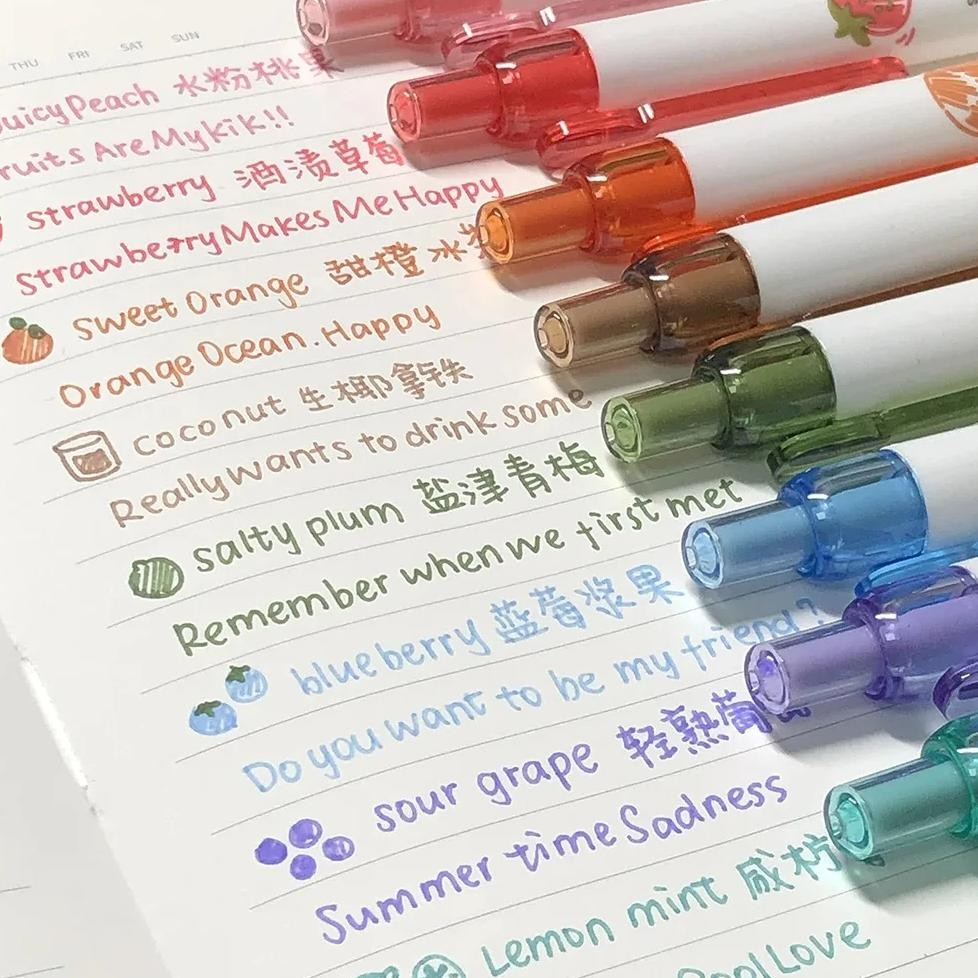 THU FRI SAT SUN
JuicyPeach 水粉桃果
Fruits Are My kik!!
strawberry 酒渍草莓
Strawberry Makes Me Happy
Sweet Orange 甜橙冰
Orange Ocean. Happy
coconut 生椰拿铁
Really wants to drink some
salty plum 盐津青梅
Remember when we first met
blueberry 蓝莓浆果
Do you want to be my friend?
sour grape 轻熟葡
Summer time Sadness
Lemon mint 咸柠
Cool Love